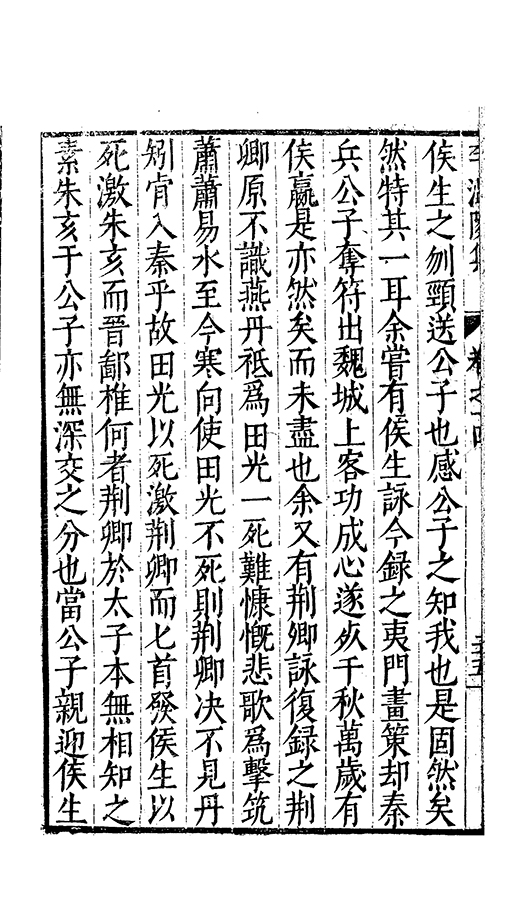 李溫陵集 卷之十四 二五
侯生之刎頸送公子也感公子之知我也是固然矣
然特其一耳余嘗有侯生詠今録之夷門畫策却秦
兵公子奪符出魏城上客功成心遂死千秋萬歲有
侯嬴是亦然矣而未盡也余又有荆卿詠復録之荆
卿原不識燕丹祗爲田光一死難慷慨悲歌爲擊筑
蕭蕭易水至今寒向使田光不死則荆卿决不見丹
矧肯入秦乎故田光以死激荆卿而匕首發侯生以
死激朱亥而晉鄙椎何者荆卿於太子本無相知之
素朱亥于公子亦無深交之分也當公子親迎侯生